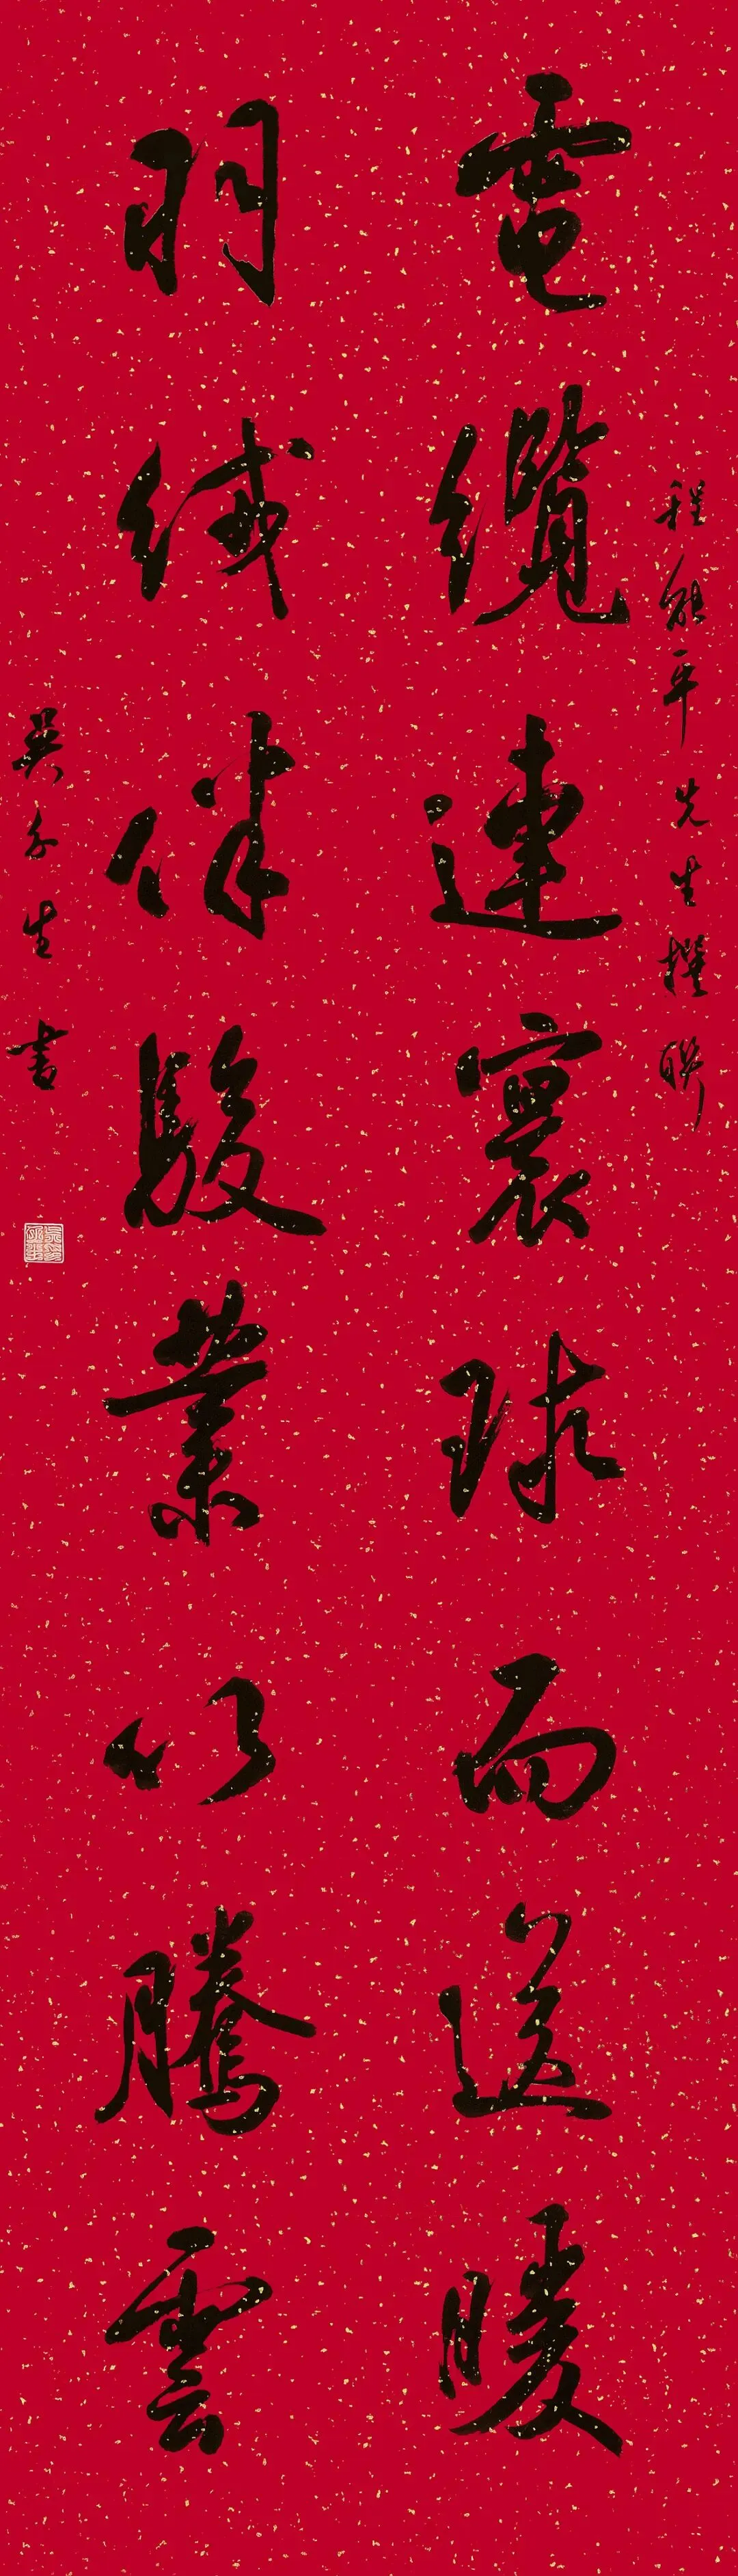 程能平先生撰聯
電纜連寰球而送暖
羽絨伴駿業以騰雲
吳生書